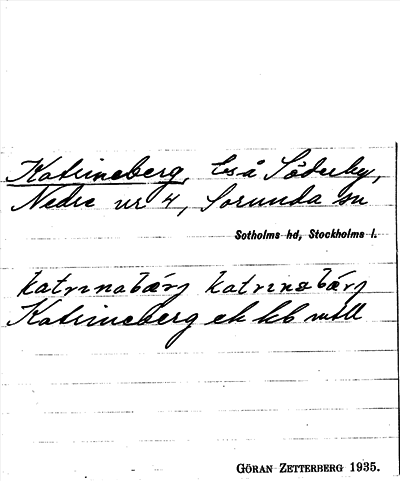 Katrineberg, lså Söderby,
Nedre nr 4, Sorunda sn
Sotholms hd, Stockholms l.
katrinabärj katrinəbärj
Katrineberg ek kb
GÖRAN ZETTERBERG 1935.